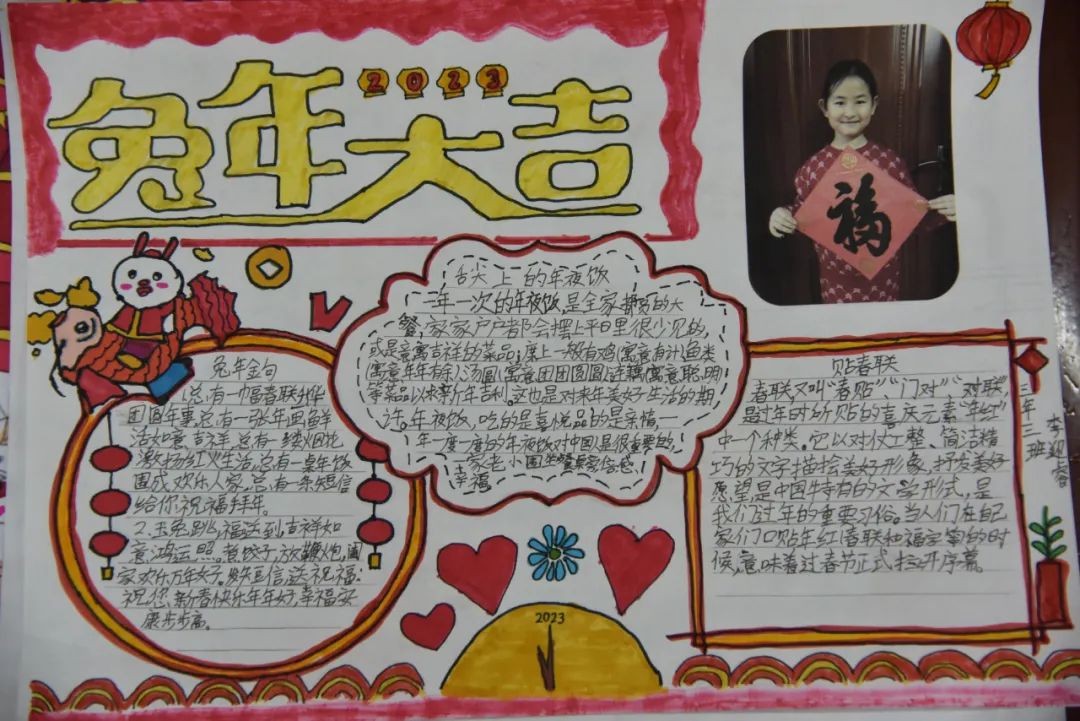 2023
兔年大吉
福
舌尖上的年夜饭
一年一次的年夜饭,是全家拥贺的大
餐,家家户户都会摆上平日里很少见的,
或是寓意吉祥的菜品,桌上一般有鸡(寓意有计)鱼类
(寓意年年有余)汤圆(寓意团团圆圆)莲藕(寓意聪明)
等菜品以求新年吉利。这也是对来年美好生活的期
许。年夜饭,吃的是喜悦品的是亲情,一
年一度的年夜饭对中国人是很重要的,
一家老小围坐餐桌旁倍感
幸福
兔年金句
1、总有一幅春联升华
团圆年事,总有一张年画鲜
活如意
总有一续烟花
激扬红火生活,总有一桌年饭
围成欢乐人家,总有一条短信
给你祝福拜年。
2、玉兔跳,福送到,吉祥如
意鸿运照。煮饺子,放鞭炮,阖
家欢乐万年好。发短信,送祝福:
祝您新春快乐年年好,幸福安
康步步高。
贴春联
春联,又叫“春贴”、“门对”、“对联”,
是过年时所贴的喜庆元素“年红”
中一个种类。它以对仗工整、简洁精
巧的文字描绘美好形象,抒发美好
愿望,是中国特有的文学形式,是
我们过年的重要习俗。当人们在自己
家们口贴年红(春联和福字等)的时
候,意味着过春节正式拉开序幕。
三年三班
李迎睿
2023